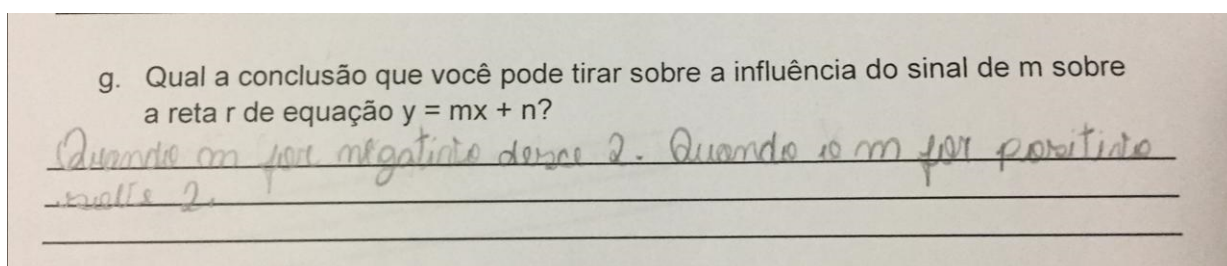 g. Qual a conclusão que você pode tirar sobre a influência do sinal de m sobre
a reta r de equação y = mx + n?
Quando m for negativo desce 2. Quando o m for positivo
2.